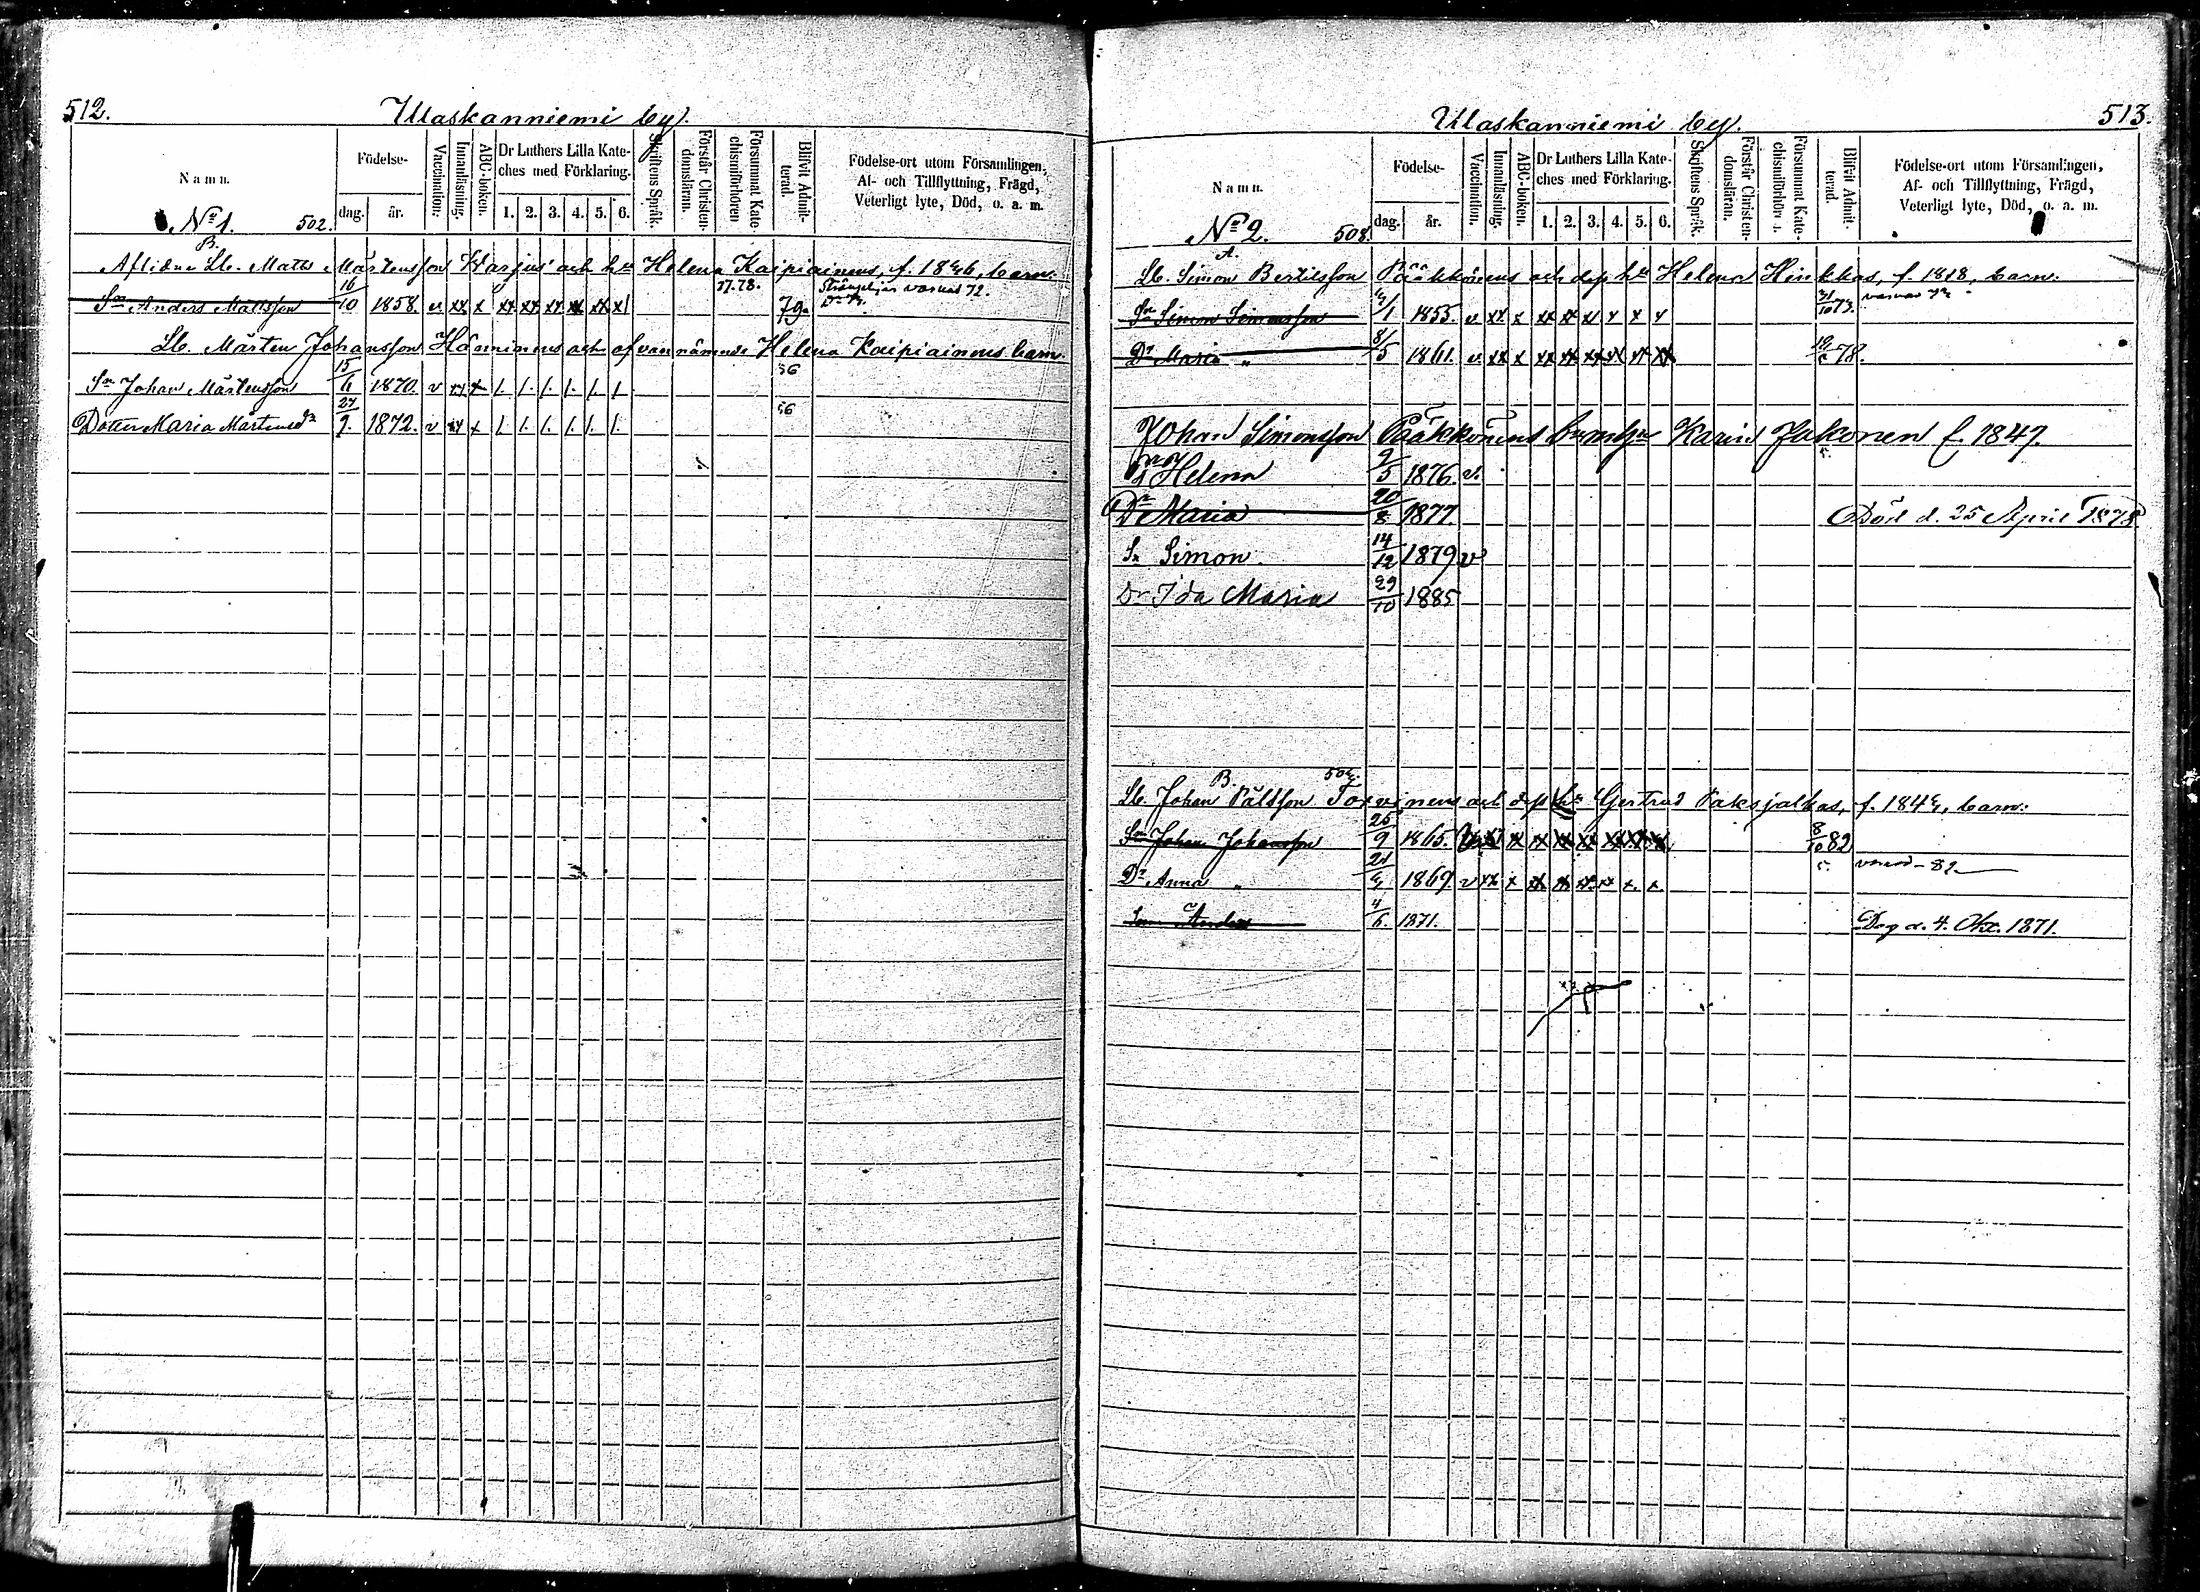 512.
Ulaskanniemi by.
Namn.
Födelse-
dag. år.
Vaccination.
Innanläsning.
ABC-boken.
Dr Luthers Lilla Kate-
ches med Förklaring.
1. 2. 3. 4. 5. 6.
Skriftens Språk.
Förstår Christen-
domsläran.
Försummat Kate-
chismiförhören
Blifvit Admit-
terad.
Födelse-ort utom Församlingen,
Af- och Tillflyttning, Frägd,
Veterligt lyte, Död, o. a. m.
No 1. 502.
B.
Aflidne Lb. Matts Mårtensson Warjus och hu Helena Kaipiainens, f. 1846, barn:
Sn Anders Mattsson 16/10 1858. v. xx x xx xx xx xx xx x 77.78. 79
Lb. Mårten Johansson Hänninens och ofvannämnde Helena Kaipiainens barn.
Sn Johan Mårtensson 15/6 1870. v xx x 1. 1. 1. 1. 1. 1. 86
Dotter Maria Mårtensdr 27/9. 1872. v xx x 1. 1. 1. 1. 1. 1. 86
513.
Ulaskanniemi by.
Namn.
Födelse-
dag. år.
Vaccination.
Innanläsning.
ABC-boken.
Dr Luthers Lilla Kate-
ches med Förklaring.
1. 2. 3. 4. 5. 6.
Skriftens Språk.
Förstår Christen-
domsläran.
Försummat Kate-
chismiförhör
Blifvit Admit-
terad.
Födelse-ort utom Församlingen,
Af- och Tillflyttning, Frägd,
Veterligt lyte, Död, o. a. m.
No 2. 508.
A.
Lb. Simon Bertilsson Pääkkönens och dess hu Helena Hinkkas, f. 1818, barn:
Sn Simon Simonsson 4/1 1855. v xx x xx xx xx x x x
Dr Maria " 8/5 1861. v xx x xx xx xx xx xx xx 78.
Johan Simonsson Pääkkönens barn hu Karin Jakonen f. 1847.
Dr Helena 9/5 1876. v.
Dr Maria 20/8 1877. Död d. 25 April 1878
Sn Simon. 14/12 1879 v
Dr Ida Maria 29/10 1885
B. 504.
Lb. Johan Pålsson Torvinens och dess hu Gertrud Paksjalkas, f. 1844, barn:
Sn Johan Johansson 25/9 1865. xx xx xx xx xx xx xx xx 8/10 82
Dr Anna " 21/4 1869 v xx x xx xx xx xx x. x.
Son Anders 4/6. 1871. Dog d. 4. Okt. 1871.